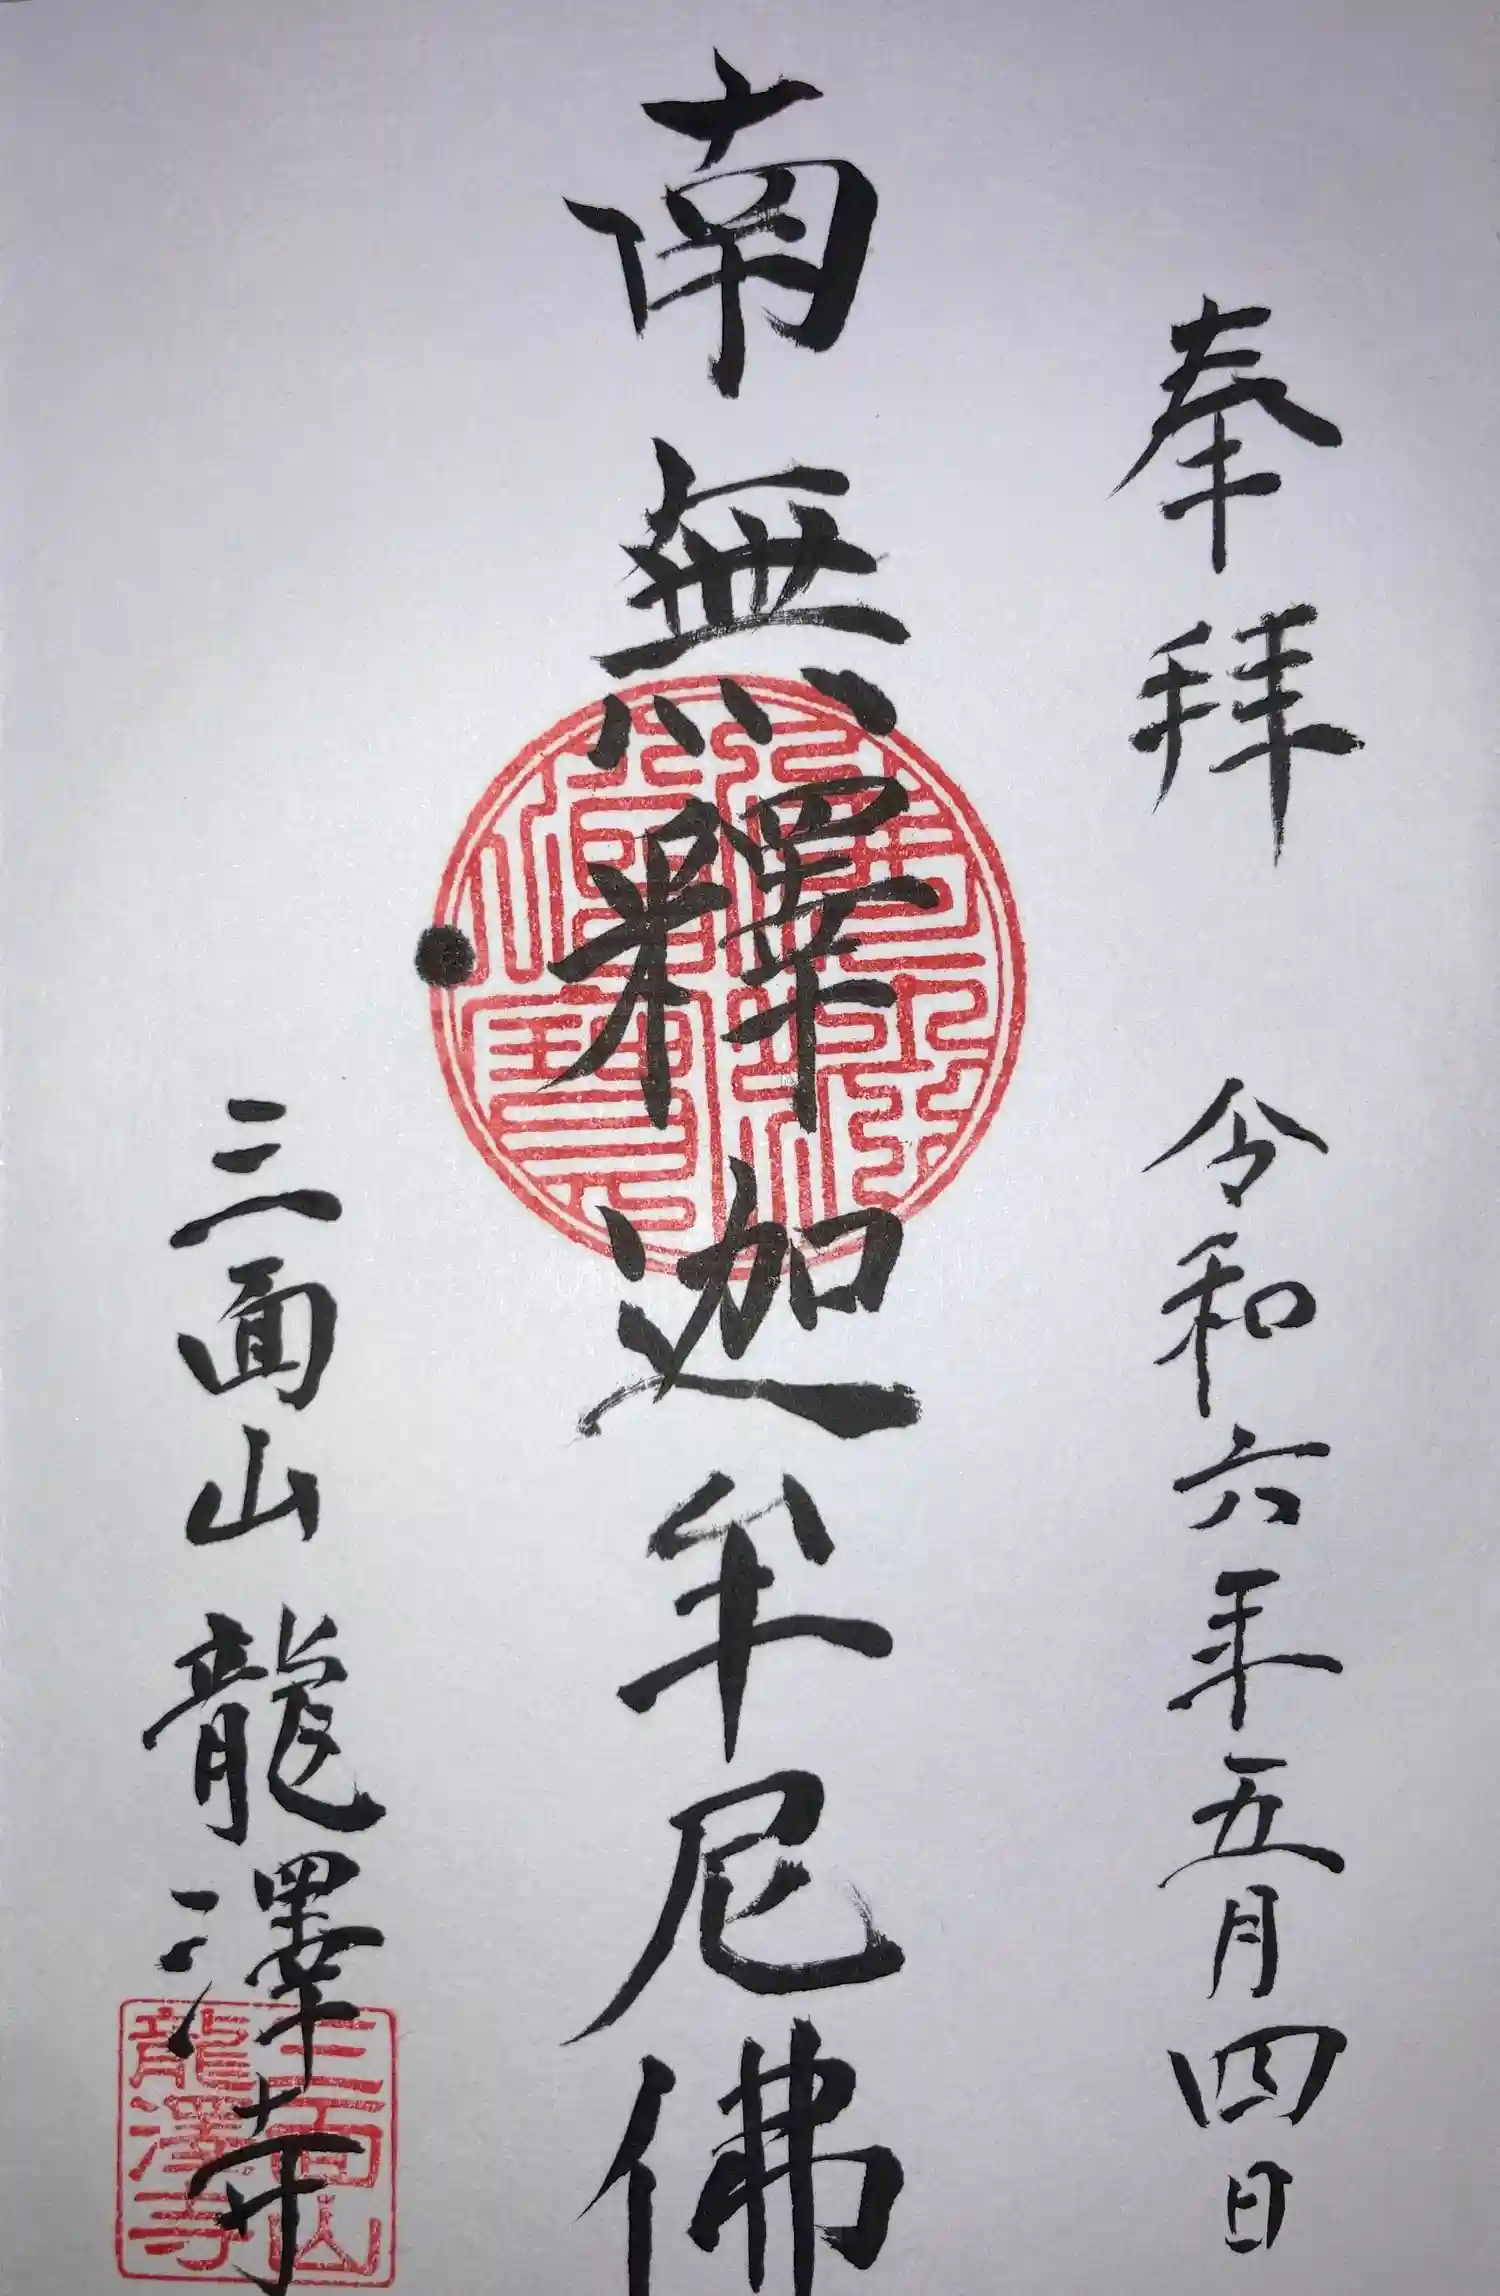 奉拜 令和六年五月四日
南無釋迦牟尼佛
三面山龍澤寺
三面山
龍澤寺